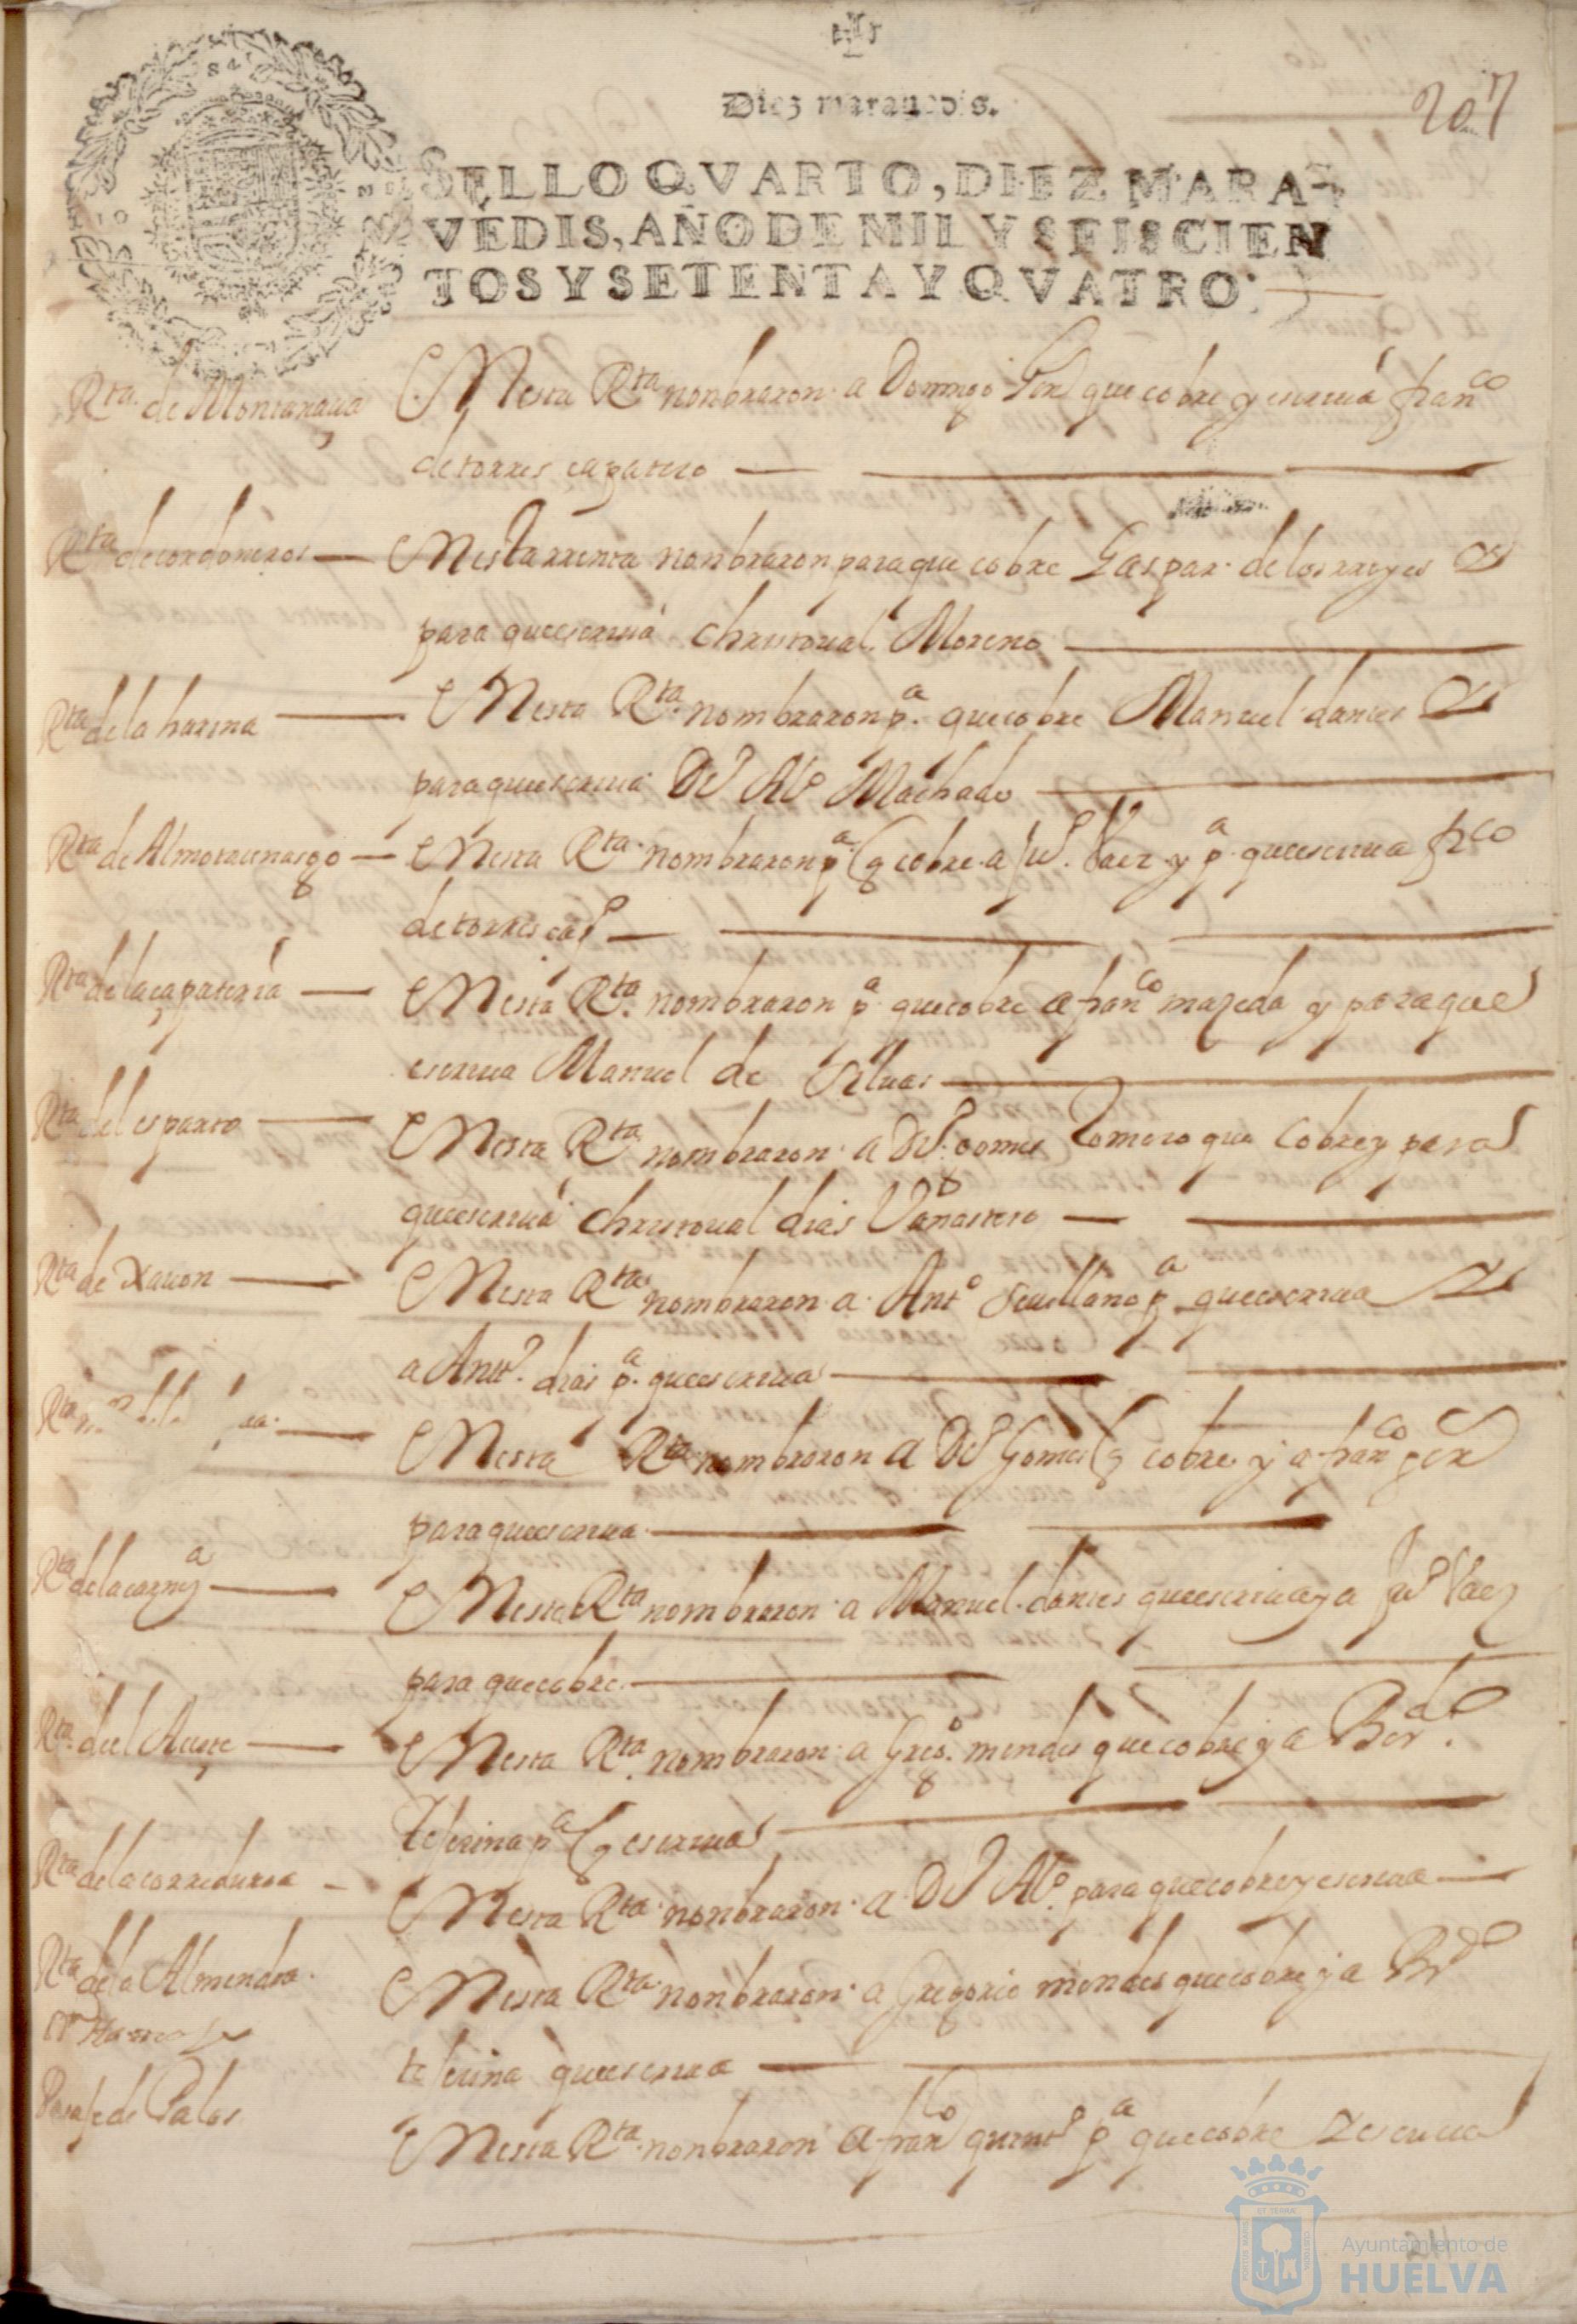 Diez marauedis.
207
SELLO QVARTO, DIEZ MARA-
VEDIS, AÑO DE MIL Y SEISCIEN
TOS Y SETENTA Y QVATRO.
Rta de Montaraçia
En esta Rta nonbraron a Domingo que cobre y escriua franco
de torres çapatero
Rta de cordoneros
En esta rrenta nonbraron para que cobre Gaspar de los rreyes y
para que escriua christoual Moreno
Rta de la harina
En esta Rta nombraron pa que cobre Manuel dantes y
para que escriua Do Alo Machado
Rta de Almotacenasgo
En esta Rta nombraron pa q cobre a Juo Vaez y pa que escriua frco
de torres çapo
Rta de la çapateria
En esta Rta nombraron pa que cobre a franco mazeda y para que
escriua Manuel de Siluas
Rta del esparto
En esta Rta nombraron a Do gomes Romero que Cobre y para
que escriua christoual dias Vanastero
Rta de Xauon
En esta Rta nombraron a Anto Seuillano pa que escriua y
a Anto dias pa que escriua
Rta
En esta Rta nombraron a Do Gomes q cobre y a franco
para que escriua
Rta de la carnya
En esta Rta nombraron a Manuel dantes que escriua y a Juo Vaez
para que cobre
Rta del Aceite
En esta Rta nombraron a Grego mendes que cobre y a Berdo
teserina pa q escriua
Rta de la correduria
En esta Rta nonbraron a Do Alo para que cobre y escriua
Rta de la Almendra
En esta Rta nonbraron a Gregorio mendes que cobre y a Brdo
teserina que escriua
Pasaje de Palos
En esta Rta nonbraron a franco quinto pa que cobre y escriua
Ayuntamiento de
HUELVA